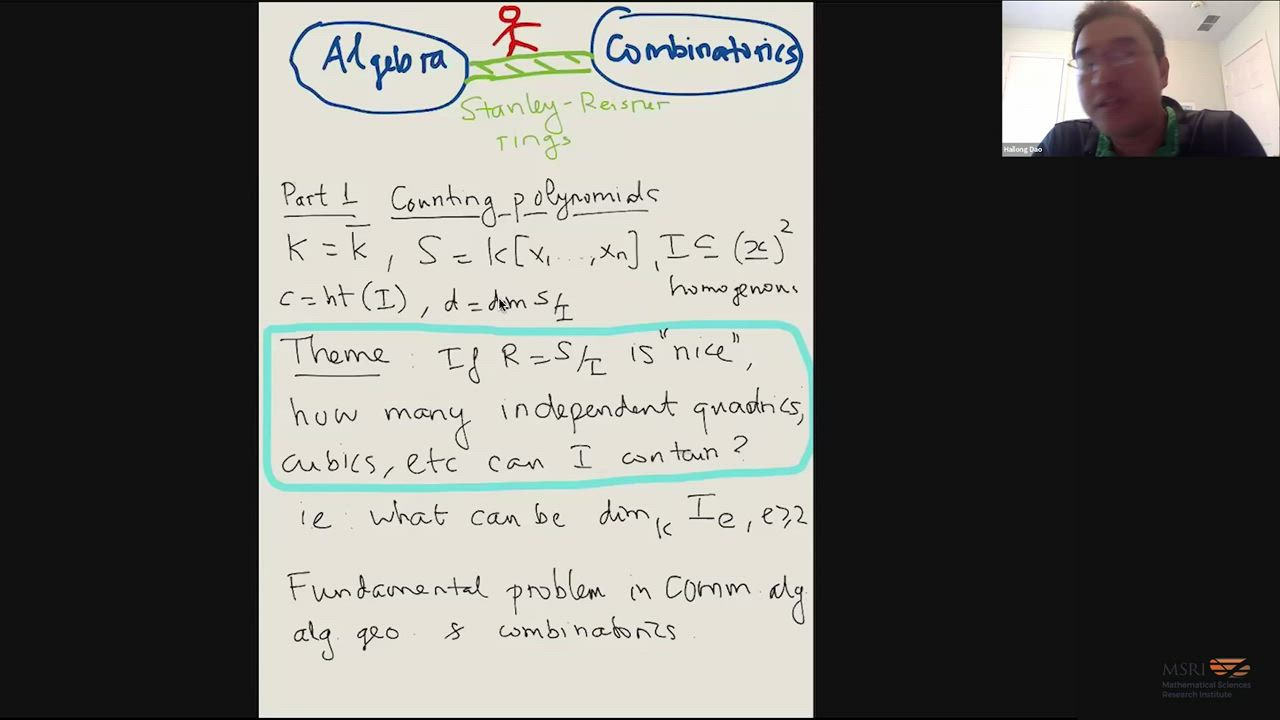 Algebra
Combinatorics
Stanley-Reisner
rings
Part 1 Counting polynomials
k = k̄, S = k[x₁,...,xₙ], I ⊆ (x)²
homogenous
c = ht(I), d = dim S/I
Theme: If R = S/I is "nice",
how many independent quadrics,
cubics, etc can I contain?
ie what can be dimₖ Iₑ, e≥2
Fundamental problem in Comm alg
alg geo & combinatorics
Hailong Dao
MSRI
Mathematical Sciences
Research Institute